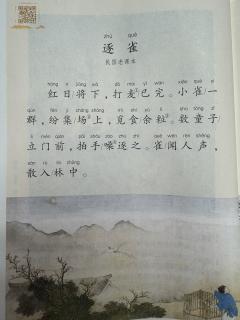 zhú què
逐雀
民国老课本
hóng rì jiāng xià dǎ mài yǐ wán xiǎo què yì
红日/将下，打麦/已完。小雀/一
qún fēn jí chǎng shàng mì shí yú lì shù tóng zǐ
群，纷集/场上，觅食/余粒。数童子/
lì mén qián pāi shǒu zào zhú zhī què wén rén shēng
立门前，拍手/噪逐之。雀/闻人声，
sàn rù lín zhōng
散入/林中。